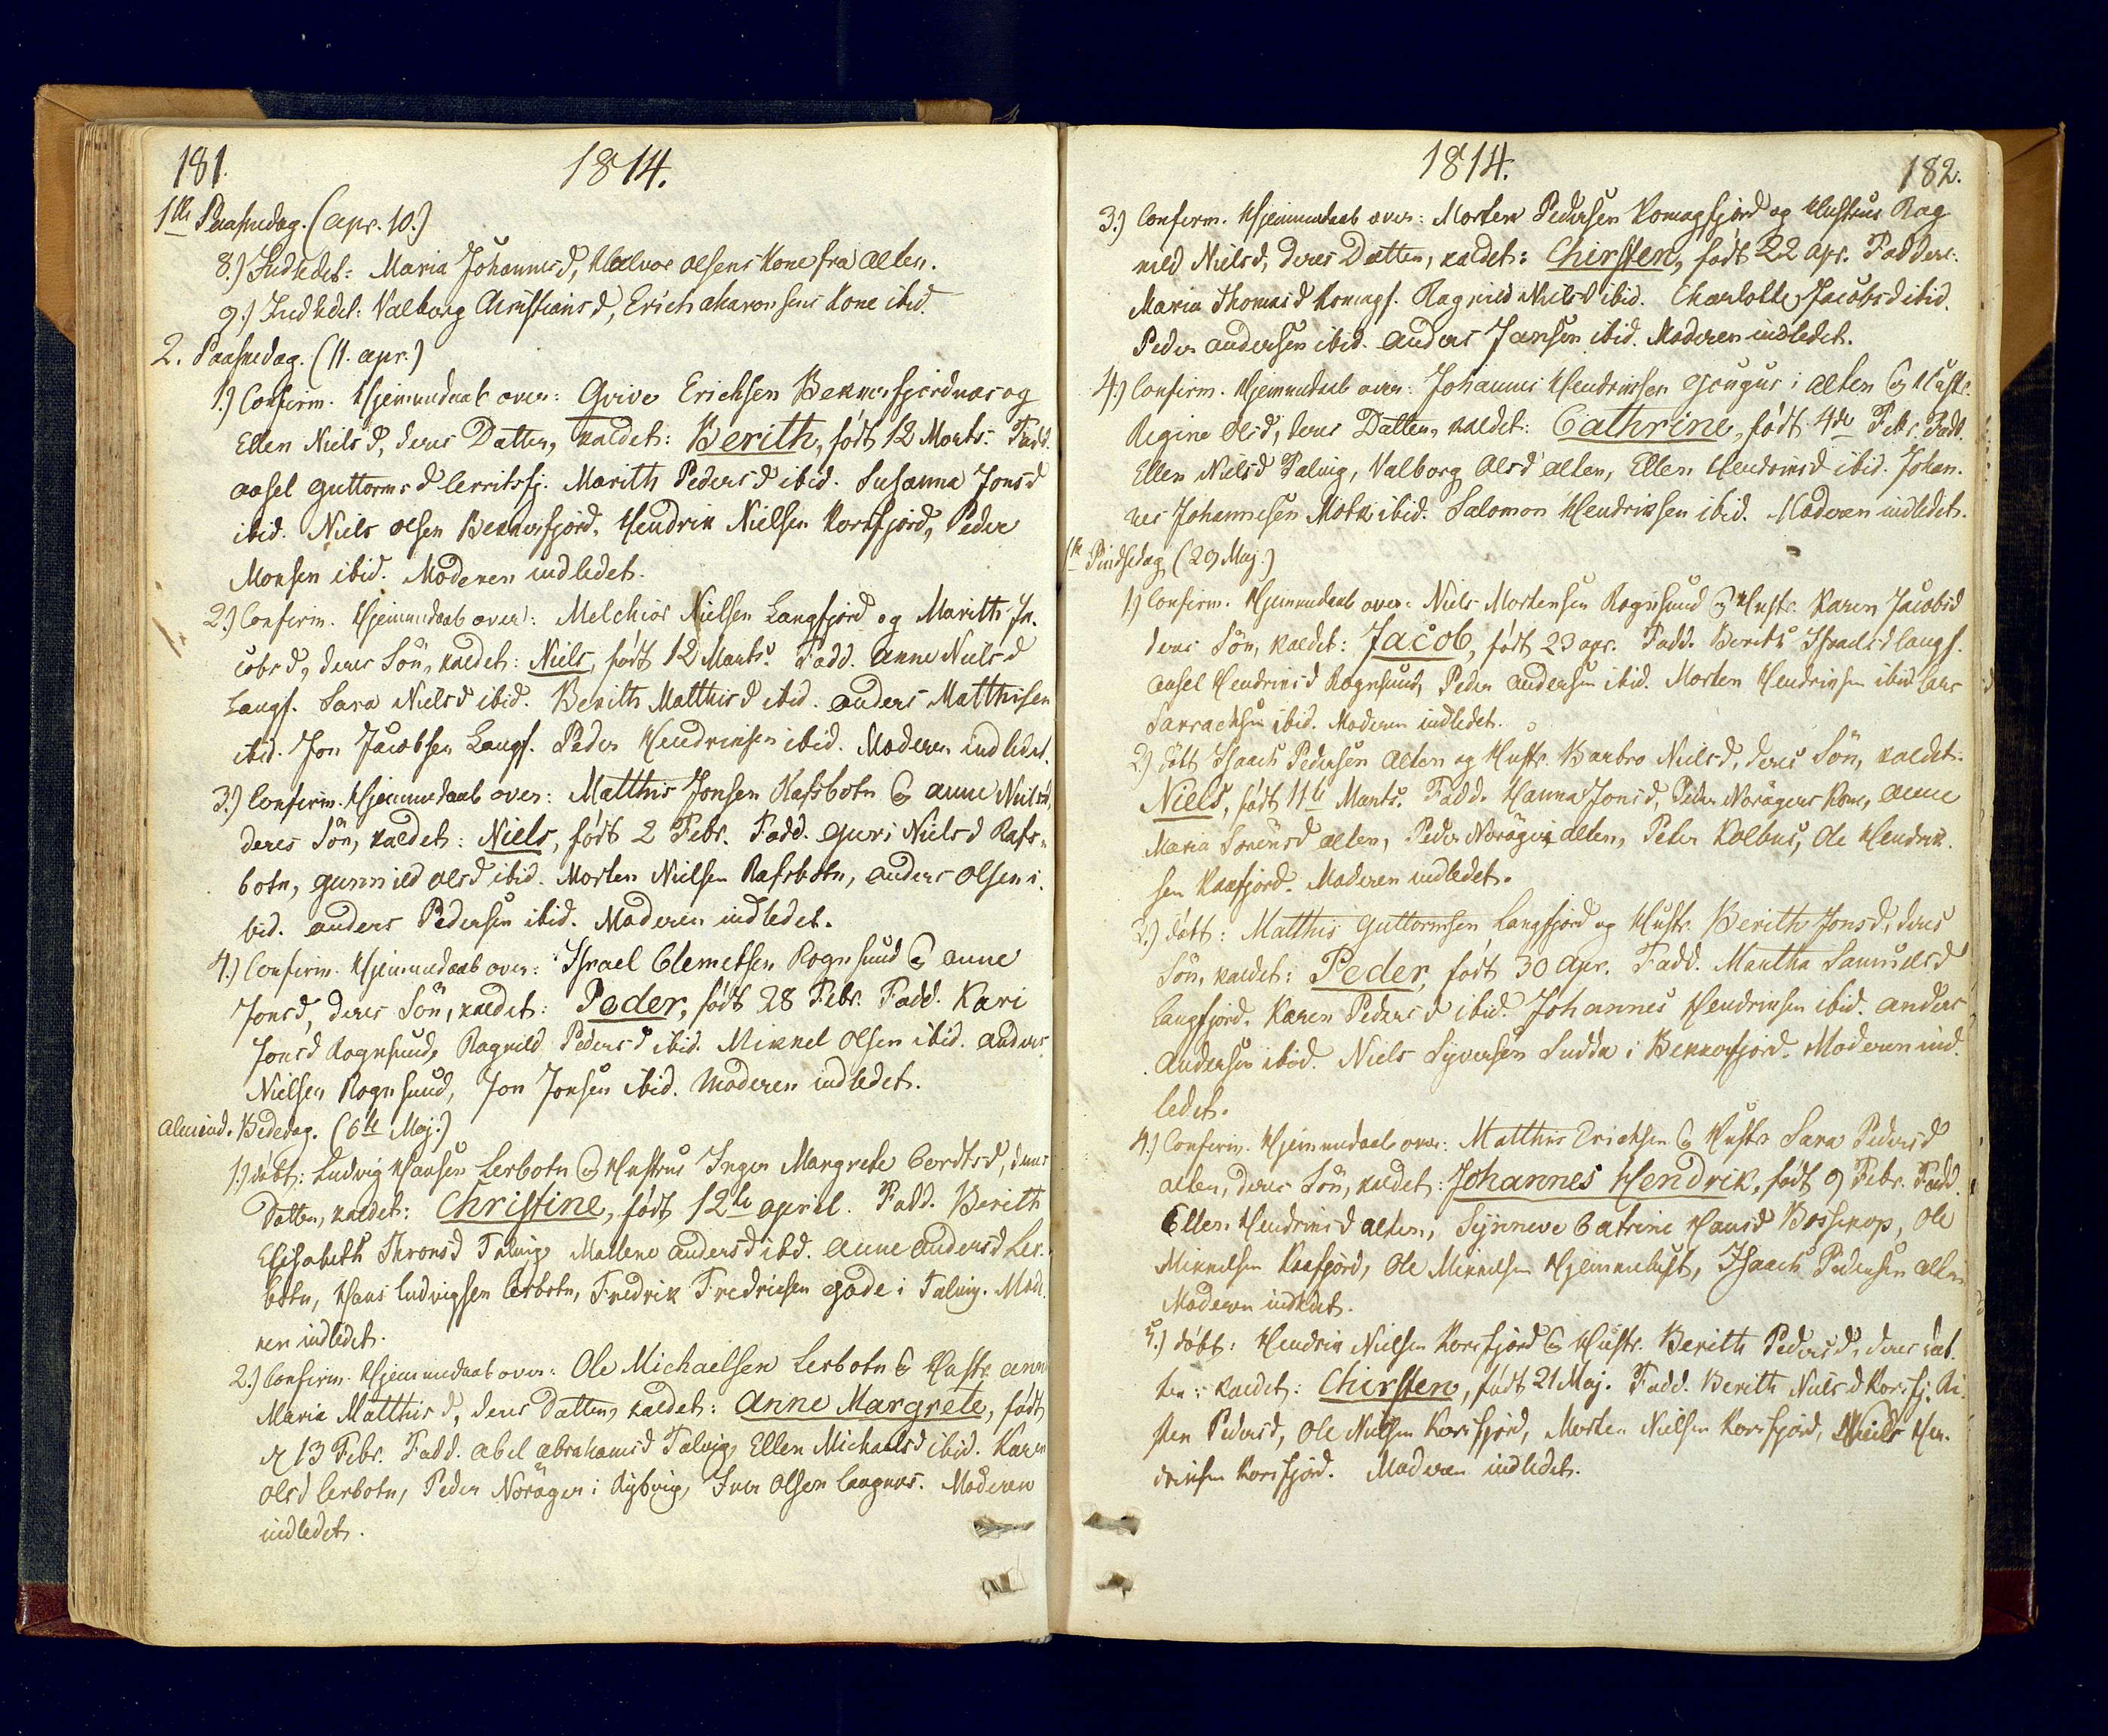 181.
1814.
1te Paaskedag. (apr. 10.)
8.) Indledet: Maria Johannesd, Halvor Olsens Kone fra Alten.
9.) Indledet: Valborg Christiansd, Erich Aaronsens Kone ibid.
2. Paaskedag. (11. apr.)
1.) Confirm. Hjemmedaab over: Erichsen Bekkerfjordnæs og
Ellen Nielsd, deres Datter, kaldet: Berith, født 12 Marts. Fadd.
Aasel Guttormsd Lerritsfj. Marith Pedersd ibid. Susanna Jonsd
ibid. Niels Olsen Bekkerfjord. Hendrik Nielsen Korsfjord, Peder
Monsen ibid. Moderen indledet.
2.) Confirm. Hjemmedaab over: Melchior Nielsen Langfjord og Marith Ja-
cobsd, deres Sön, kaldet: Niels, født 12 Marts. Fadd. Anne Nielsd
Langf. Sara Nielsd ibid. Berith Matthisd ibid. Anders Matthisen
ibid. Jon Jacobsen Langf. Peder Hendriksen ibid. Moderen indledet.
3.) Confirm. Hjemmedaab over: Matthis Jonsen Rafsbotn & Anne Nielsd,
deres Sön, kaldet: Niels, født 2 Febr. Fadd. Guri Nielsd Rafs-
botn, Gunnild Olsd ibid. Morten Nielsen Rafsbotn, Anders Olsen i-
bid. Anders Pedersen ibid. Moderen indledet.
4.) Confirm. Hjemmedaab over: Israel Clemetsen Rognsund & Anne
Jonsd, deres Sön, kaldet: Peder, født 28 Febr. Fadd. Kari
Jonsd Rognsund, Ragnild Pedersd ibid. Mikkel Olsen ibid. Anders
Nielsen Rognsund, Jon Jonsen ibid. Moderen indledet.
Almind. Bededag. (6te Maj.)
1.) döbt: Ludvig Hansen Lerbotn & Hustrue Inger Margrete Cordtsd, deres
Datter, kaldet: Christine, født 12te April. Fadd. Berith
Elisabeth Thronsd Talvig, Mallene Andersd ibd. Anne Andersd Ler-
botn, Hans Ludvigsen Lerbotn, Fredrik Fredriksen Gade i Talvig. Mode-
ren indledet.
2.) Confirm. Hjemmedaab over: Ole Michaelsen Lerbotn & Hustr. Anne
Maria Matthisd, deres Datter, kaldet: Anne Margrete, født
13 Febr. Fadd. Abel Abrahamsd Talvig, Ellen Michaelsd ibid. Karen
Olsd Lerbotn, Peder Norager i Iver Olsen Langnæs. Moderen
indledet.
1814.
182.
3.) Confirm. Hjemmedaab over: Morten Pedersen Komagfjord og Hustrue Rag
nild Nielsd, deres Datter, kaldet: Chirsten, født 22 Apr. Faddere.
Maria Thomasd Komagf. Ragnild Nielsd ibid. Charlotte Jacobsd ibid.
Peder Andersen ibid. Anders Jansen ibid. Moderen indledet.
4.) Confirm. Hjemmedaab over: Johannes Hendriksen i Alten & Hustr.
Regine Olsd, deres Datter, kaldet: Cathrine, født 4de Febr. Fadd.
Ellen Nielsd Talvig, Valborg Olsd Alten, Ellen Hendriksd ibid. Johan-
nes Johannesen Motk ibid. Salomon Hendriksen ibid. Moderen indledet.
1te Pindsedag (29 Maj.)
1.) Confirm. Hjemmedaab over: Niels Mortensen Rognsund & Hustr. Karen Jacobsd
deres Sön, kaldet: Jacob, født 23 apr. Fadd. Berith Israelsd Langf.
Aasel Hendriksd Rognsund, Peder Andersen ibid. Morten Hendriksen ibid Lars
ibid. Moderen indledet.
2.) döbt Isaach Pedersen Alten og Hustr. Barbro Nielsd, deres Sön, kaldet:
Niels, født 11te Marts. Fadd. Hanna Jonsd, Peder Noragers Kone, Anne
Maria Sörensd Alten, Peder Norager Alten, Peter Kolbus, Ole Hendrik-
sen Kaafjord. Moderen indledet.
3.) døbt: Matthis Guttormsen Langfjord og Hustr. Berith Jonsd, deres
Sön, kaldet: Peder, født 30 Apr. Fadd. Martha Samuelsd
Langfjord. Karen Pedersd ibid. Johannes Hendriksen ibid. Anders
Andersen ibid. Niels Syversen Sudda i Bekkerfjord. Moderen ind-
ledet.
4.) Confirm. Hjemmedaab over: Matthis Erichsen & Hustr Sara Pedersd
Alten, deres Sön, kaldet: Johannes Hendrik, født 9 Febr. Fadd.
Ellen Hendriksd Alten, Synneve Catrine Hansd Bossekop, Ole
Mikkelsen Kaafjord, Ole Mikkelsen Hjemmeluft, Isaach Pedersen Alten
Moderen indledet.
5.) døbt: Hendrik Nielsen Korsfjord & Hustr. Berith Pedersd, deres Dat-
ter: kaldet: Chirsten, født 21 Maj. Fadd. Berith Nielsd Korsfj. Ki-
sten Pedersd, Ole Nielsen Korsfjord, Morten Nielsen Korsfjord, Niels Hen-
driksen Korsfjord. Moderen indledet.